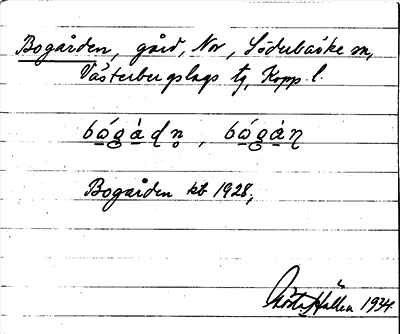 Bogården, gård, Nor, Söderbärke sn,
Västerbergslags tg, Kopp. l.
bógàdn̥, bógàn
Bogården kb 1928,
Gösta Hallén 1934